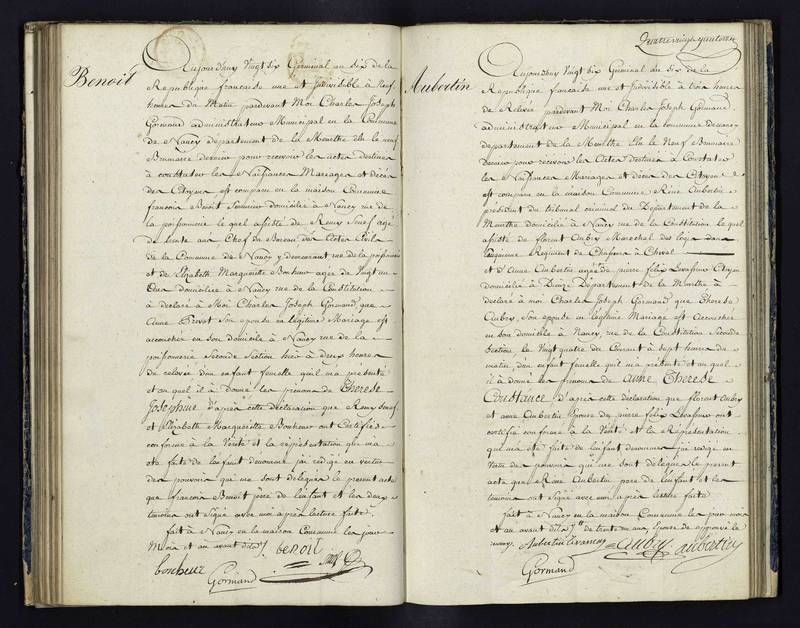 Benoit
Aujourdhuy Vingt six Germinal an six de la
Republique francaise une et Indivisible à Neuf
heures du Matin pardevant Moi Charles Joseph
Gormand administrateur Municipal en la Commune
de Nancy département de la Meurthe élu le neuf
Brumaire dernier pour recevoir les actes destinés
à constater les Naissances Mariages et décès
des Citoyens est comparu en la maison Commune
francois Benoit domicilié à Nancy rue de
la poissonnerie le quel assisté de Remy agé
de trente ans Chef du Bureau des Actes Civils
de la Commune de Nancy y demeurant rue de la poissonnerie
et de Elizabeth Marguerite Bonheur agée de Vingt un
ans domiciliée à Nancy rue de la Constitution
a déclaré à Moi Charles Joseph Gormand que
Anne son epouse en légitime Mariage est
accouchée en son domicile à Nancy rue de la
poissonnerie Seconde Section hier à deux heures
de relevée d'un enfant femelle qu'il ma présenté
et au quel il a donné les prénoms de Therese
Josephine d'après cette déclaration que Remy
et Elizabeth Marguerite Bonheur ont Certifiée
conforme à la Verité et la représentation qui ma
été faite de l'enfant denommé j'ai redigé en vertu
des pouvoirs qui me sont délégués le présent acte
que francois Benoit père de l'enfant et les deux
témoins ont signé avec moi après lecture faite
fait à Nancy en la maison Commune les jour
Mois et an avant dits benoit
bonheur
Gormand
Quatre vingt quatorze
Aubertin
Aujourdhuy Vingt six Germinal an six de la
Republique francaise une et Indivisible à trois heures
de Relevée pardevant Moi Charles Joseph Gormand
administrateur Municipal en la commune de Nancy
departement de la Meurthe élu le Neuf Brumaire
dernier pour recevoir les Actes destinés à Constater
les Naissances Mariages et décès des Citoyens
est comparu en la maison Commune Réné Aubertin
président du tribunal criminel du Departement de la
Meurthe domicilié à Nancy rue de la Constitution le quel
assisté de florent Aubry Marechal des logis dans
Regiment de Chasseurs à Cheval
et d'Anne Aubertin épouse de pierre felix Levasseur Citoyen
domicilié à Departement de la Meurthe a
déclaré à moi Charles Joseph Gormand que Therese
Aubry son epouse en legitime Mariage est accouchée
en son domicile à Nancy rue de la Constitution Seconde
Section le Vingt quatre du Courant à sept heures du
matin d'un enfant femelle qu'il ma présenté et au quel
il a donné les prénoms de Anne Therese
Constance d'après cette déclaration que florent Aubry
et anne Aubertin épouse de pierre felix Levasseur ont
certifiée conforme à la Verité et la Représentation
qui ma été faite de l'enfant denommé j'ai redigé en
Vertu des pouvoirs qui me sont délégués le présent
acte que Réné Aubertin père de l'enfant et les
témoins ont Signé avec moi après lecture faite
fait à Nancy en la maison Commune les jour mois
et an avant dits de trente ans épouse de approuvé le
Aubertin Levasseur Aubry aubertin
Gormand